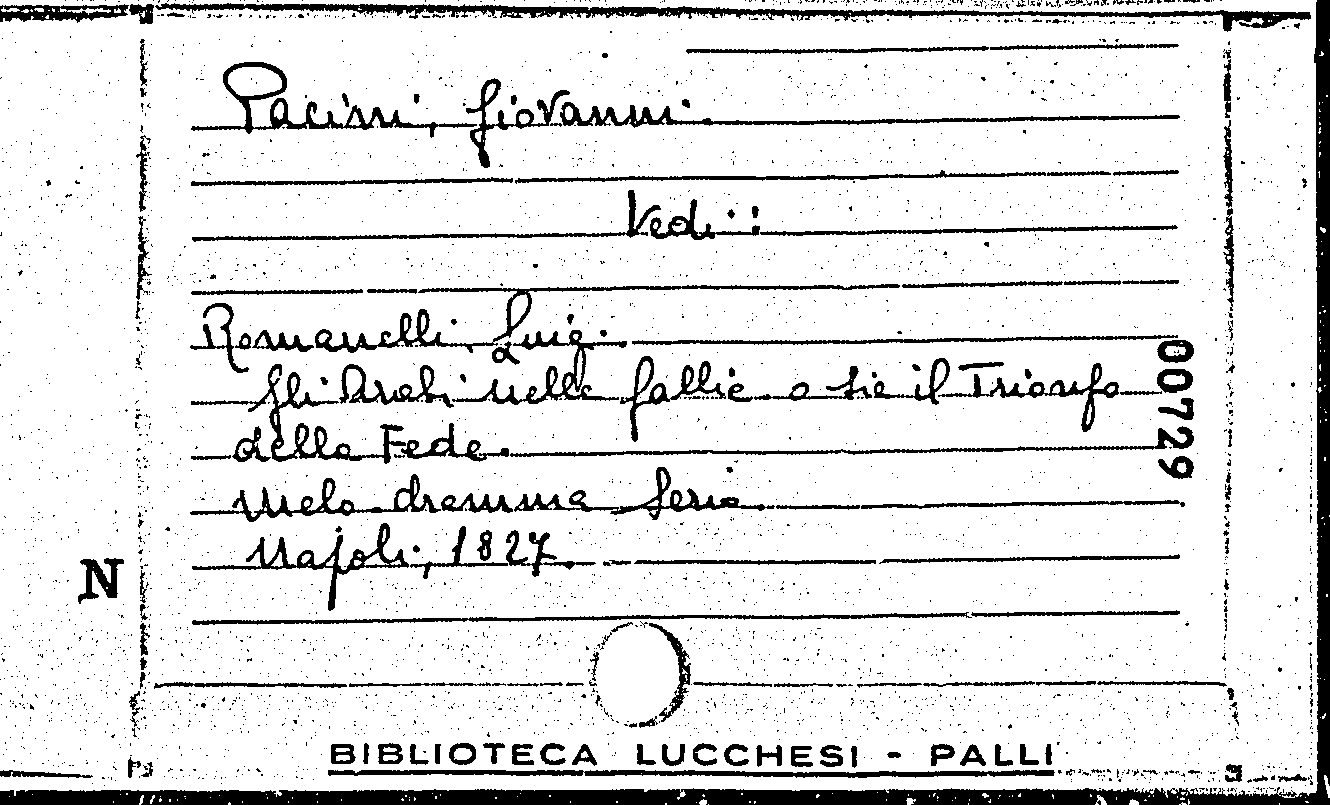 Pacini, Giovanni.
Vedi:
Romanelli, Luigi.
Gli Arabi nelle Gallie o sia il Trionfo
della Fede.
Melo-dramma serio.
Napoli, 1827.
00729
N
BIBLIOTECA LUCCHESI - PALLI